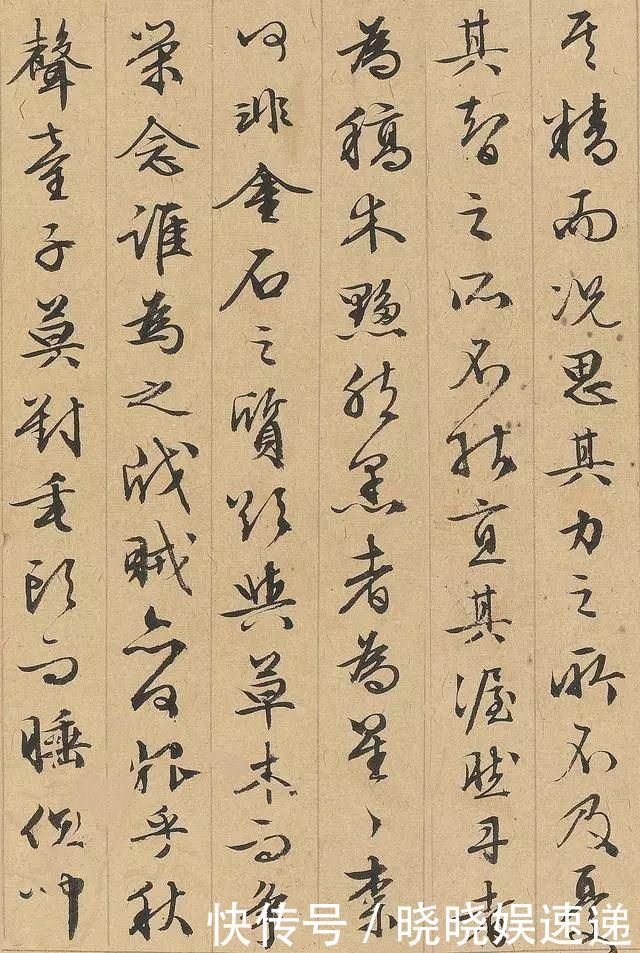 其精而况思其力之所不及憂
其智之所不能宜其渥然丹者
為稿木黟然黑者為星〻柰
何非金石之質欲與草木而争
榮念誰為之戕賊亦何恨乎秋
聲童子莫對垂頭而睡但聞
快传号 / 晓晓娱速递